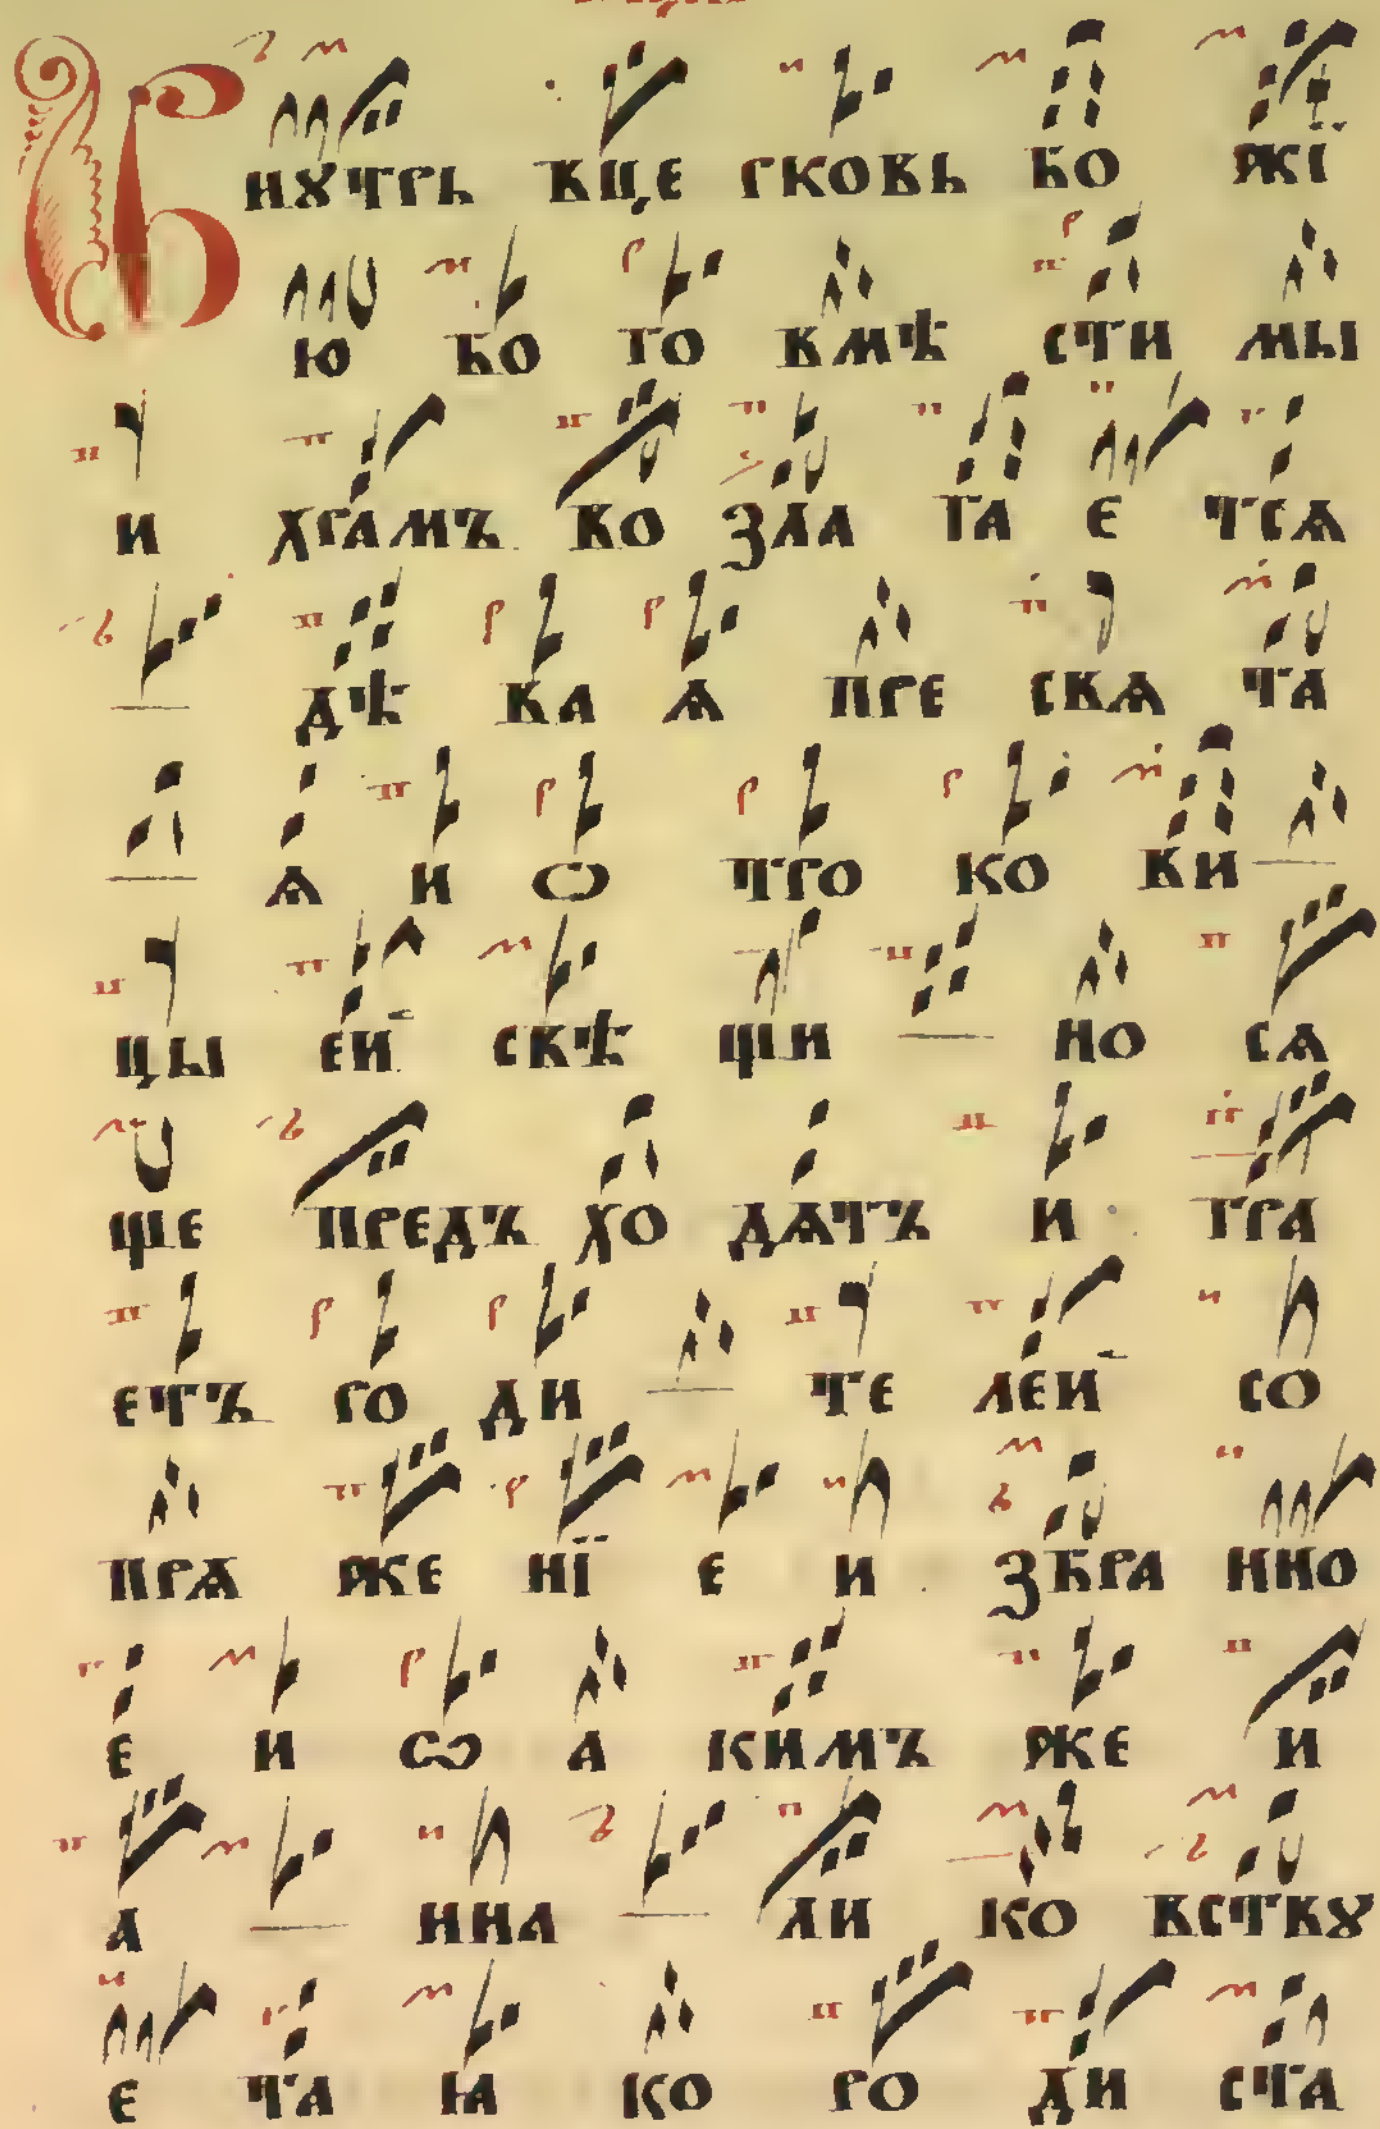 Внꙋтрь вце рковь бо жї
ю бо го вмѣ сти мы
и храмъ во зла га е тсѧ
дѣ ва ѧ пре свѧ та
ѧ и ѡ тро ко ви
цы ей свѣ щи но сѧ
ще предъ хо дѧтъ и гра
етъ ро ди те лей со
прѧ же нї е и збра нно
е и ѡ а кимъ же и
а нна ли ко вству
е та ꙗ ко ро ди ста